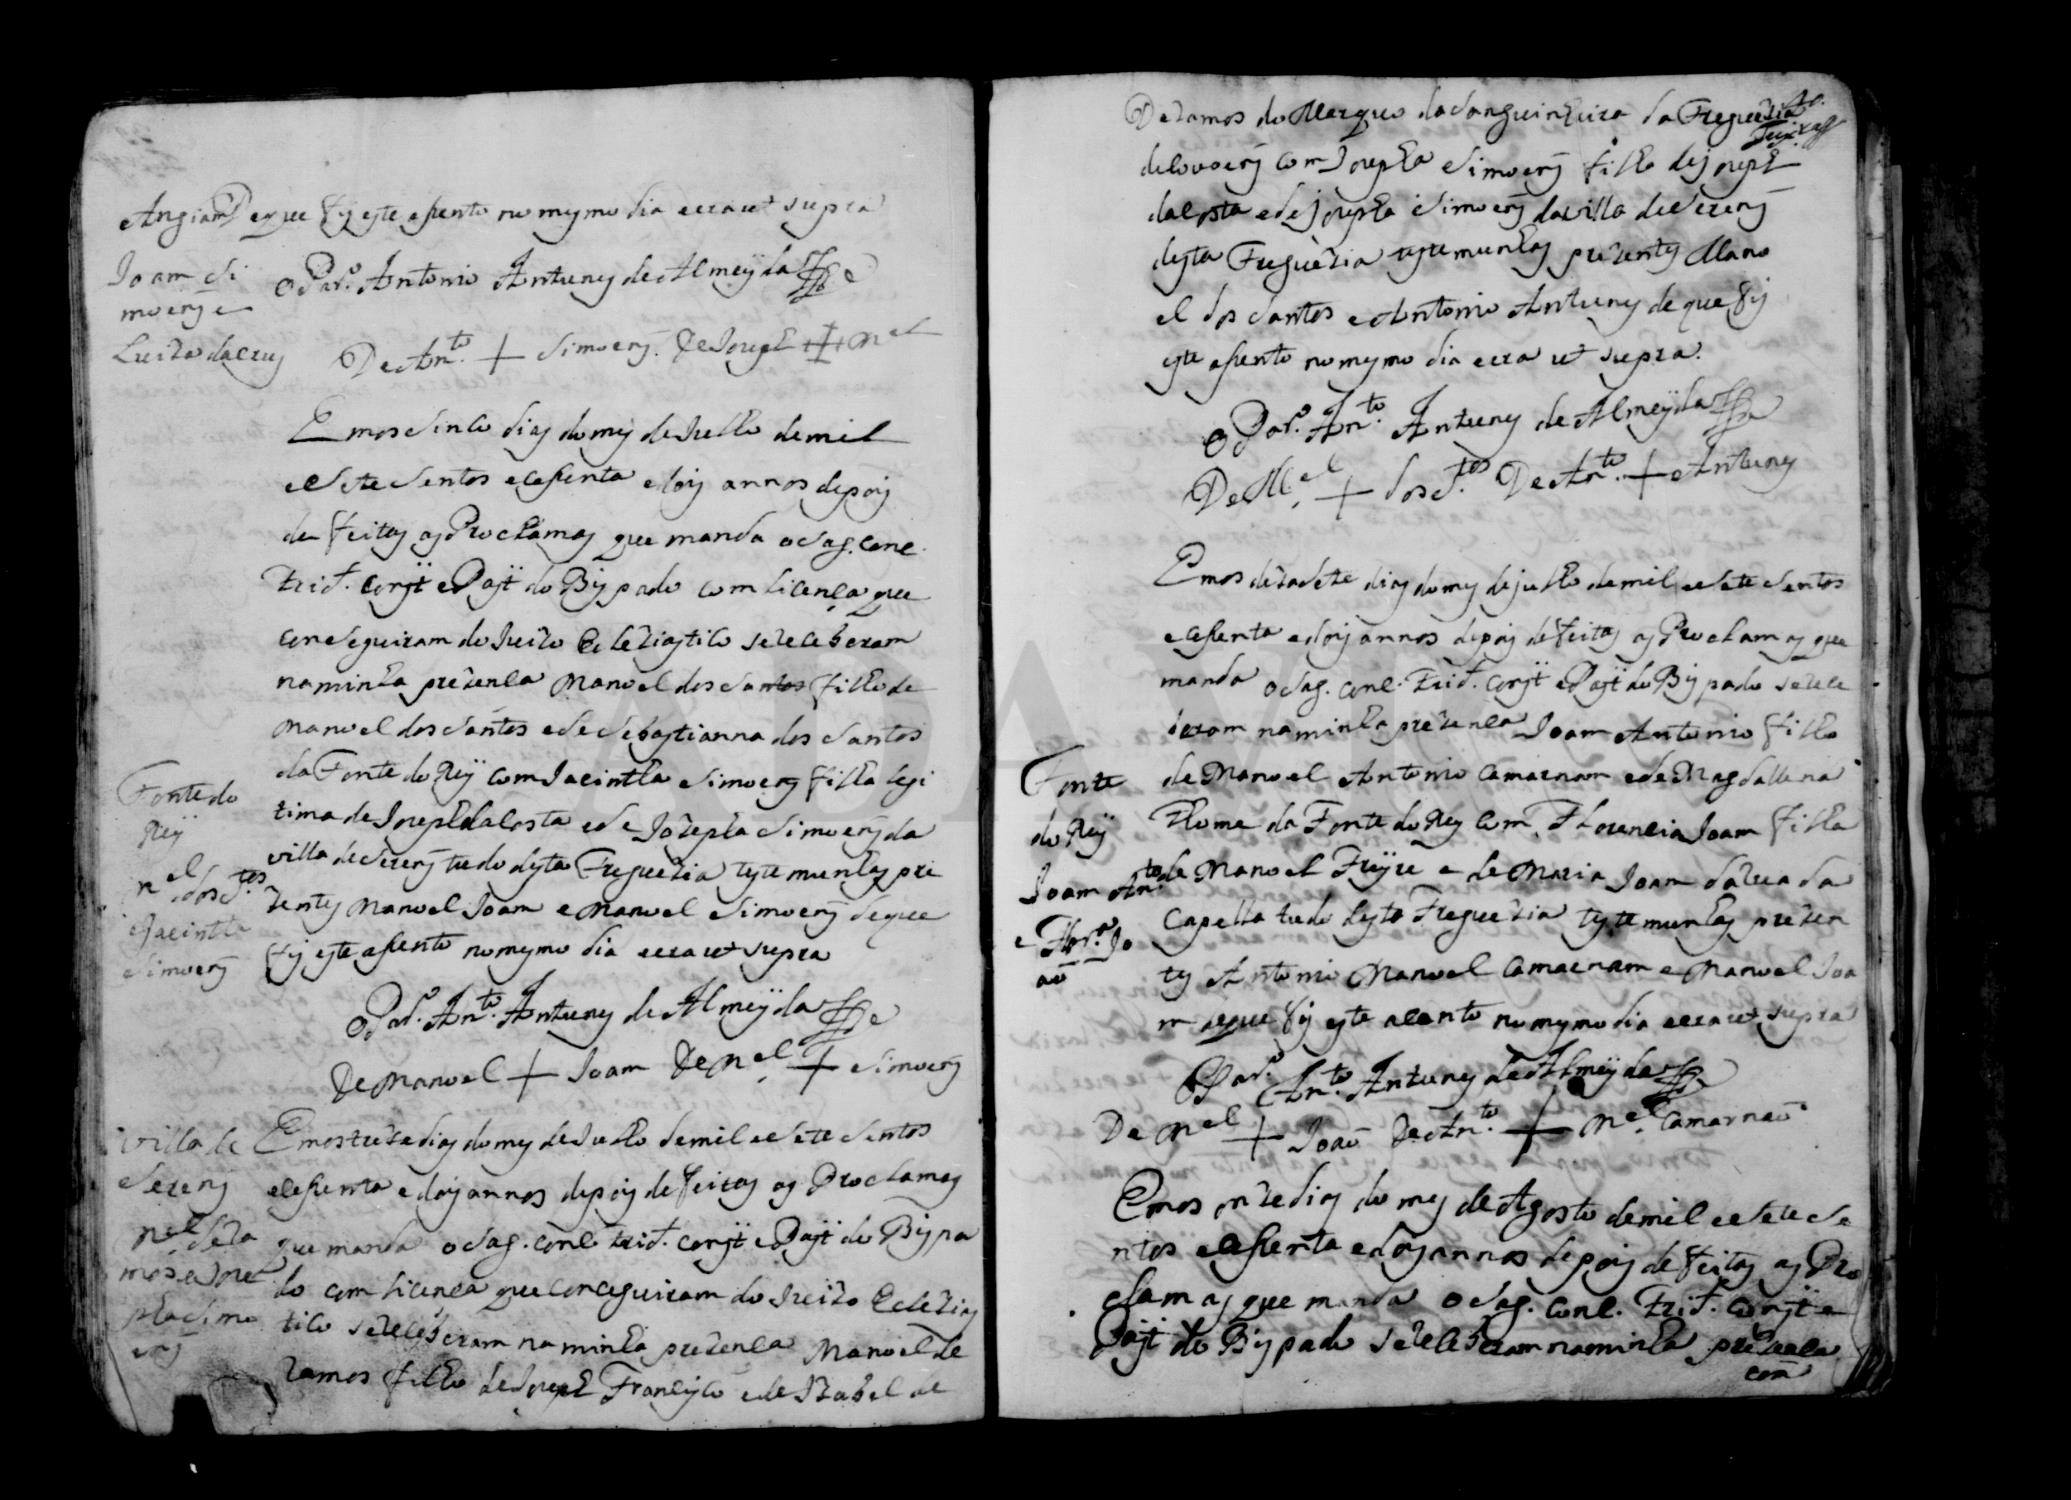 Angiam e que fis este asento no mesmo dia era ut supra
Joam Si
moens e
Luiza da Crus
O Par.º Antonio Antunes de Almeyda
De Ant.º + Simoens. De Joseph + M.el
Em os sinco dias do mes de Julho de mil
e sete sentos e sesenta e dois annos depois
de feitas as Proclamas que manda o Sag. Conc.
Trid. Const e Past do Bispado com licença que
conseguiram do Juizo Eclesiastico se receberam
na minha prezença Manoel dos Santos filho de
Manoel dos Santos e de Sebastianna dos Santos
da Fonte do Rey com Jacintha Simoens filha legi
tima de Joseph da Costa e de Jozepha Simoens da
villa de Serem tudo desta Freguezia testemunhas pre
zentes Manoel Joam e Manoel Simoens de que
fis este asento no mesmo dia era ut supra
Fonte do
Rey
M.el dos S.tos
e Jacintha
Simoens
O Par.º Ant.º Antunes de Almeyda
De Manoel + Joam De M.el + Simoens
Villa de
Serem
M.el de Ra
mos e Joze
pha Simo
ens
Em os treze dias do mes de Julho de mil e sete sentos
e sesenta e dois annos depois de feitas as Proclamas
que manda o Sag. Conc. Trid. Const e Past do Bispa
do com licença que conseguiram do Juizo Eclezias
tico se receberam na minha prezença Manoel de
Ramos filho de Joseph Francisco e de Izabel de
De Ramos do Marque da Sanguinheira da Freguezia
de com Josepha Simoens filha de Joseph
da Costa e de Josepha Simoens da villa de Serem
desta Freguezia testemunhas prezentes Mano
el dos Santos e Antonio Antunes de que fis
este asento no mesmo dia era ut supra.
O Par.º Ant.º Antunes de Almeyda
De M.el + dos S.tos De Ant.º + Antunes
Em os dezasete dias do mes de Julho de mil e sete sentos
e sesenta e dois annos depois de feitas as Proclamas que
manda o Sag. Conc. Trid. Const e Past do Bispado se rece
beram na minha prezença Joam Antonio filho
de Manoel Antonio Camarnam e de Magdallena
Thome da Fonte do Rey com Florencia Joam filha
de Manoel Freyre e de Maria Joam da rua da
Capella tudo desta Freguezia testemunhas prezen
tes Antonio Manoel Camarnam e Manoel Joa
m de que fis este acento no mesmo dia era ut supra
Fonte
do Rey
Joam Ant.º
e Flor.ª Jo
aõ
O Par.º Ant.º Antunes de Almeyda
De M.el + Joaõ De Ant.º + M.el Camarnaõ
Em os onze dias do mes de Agosto de mil e sete se
ntos e sesenta e dois annos depois de feitas as Pro
clamas que manda o Sag. Conc. Trid. Const e
Past do Bispado se receberam na minha prezença
com